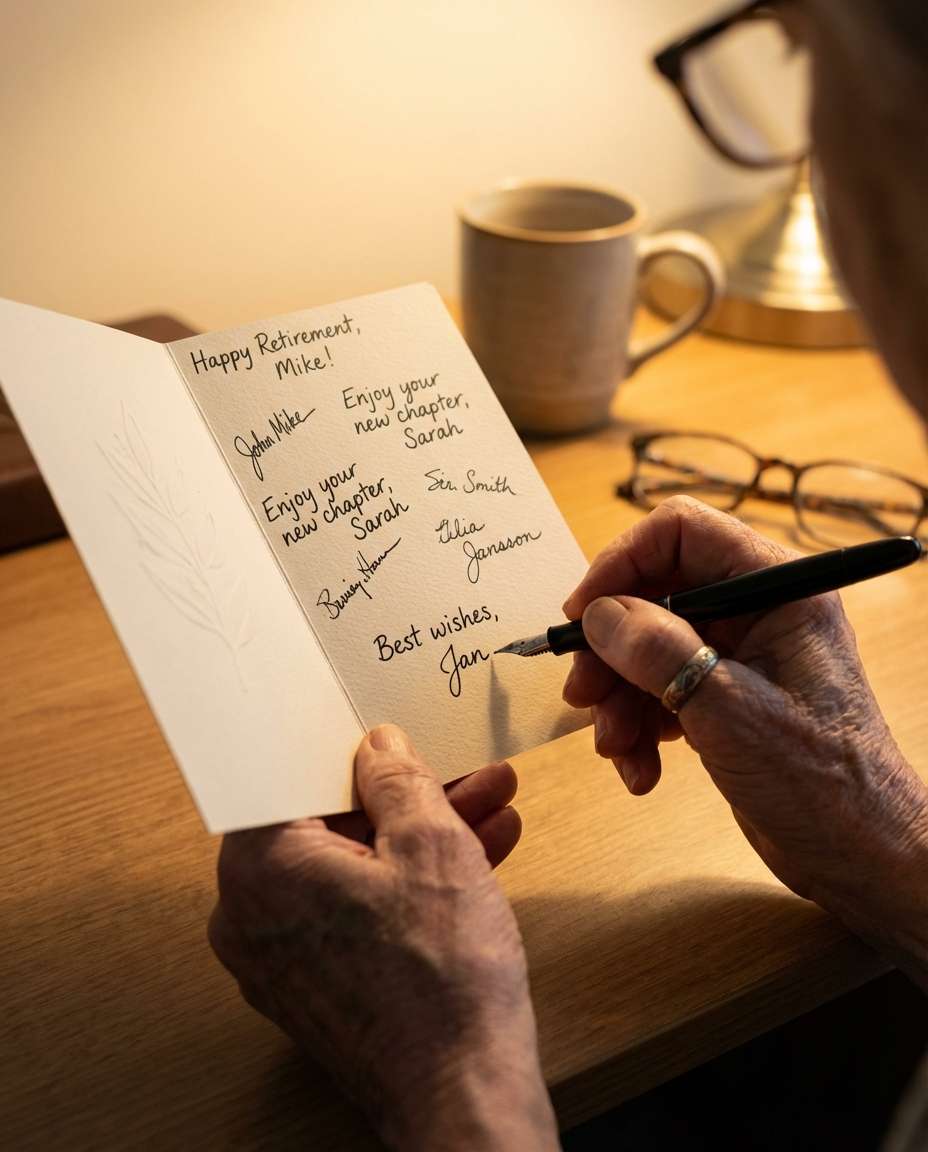 Happy Retirement,
Mike!
John Mike
Enjoy your
new chapter,
Sarah
Enjoy your
new chapter,
Sarah
Smith
Jansson
Best wishes,
Jan